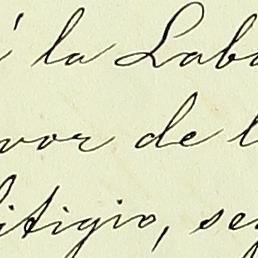 la Labo
vor de l
litigio, seg